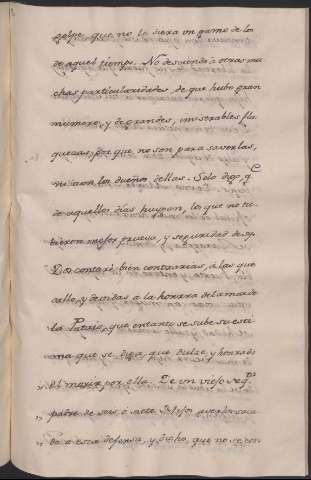 golpe, que no le diera un gamo de los
de aquel tiempo. No desciendo a otras mu
chas particularidades, de que hubo gran
numero, y de grandes, miserables fla
quezas, por que no son para saverlas,
ni aun los dueños dellas. Solo digo q.e
de aquellos dias huyan, los que no tu
bieron mejor prueva, y seguridad de sy
Dos contaré, bien contrarias, á las que
callo, y devidas á la honrra del amor de
la Patria, que en tanto se sube su esti
ma que se diga, que dulze, y honrado
el morir por ella. De un viejo se q.e
padre de seis ó siete hijos que los saca
ba a esta defensa, y dicho, que no se con-